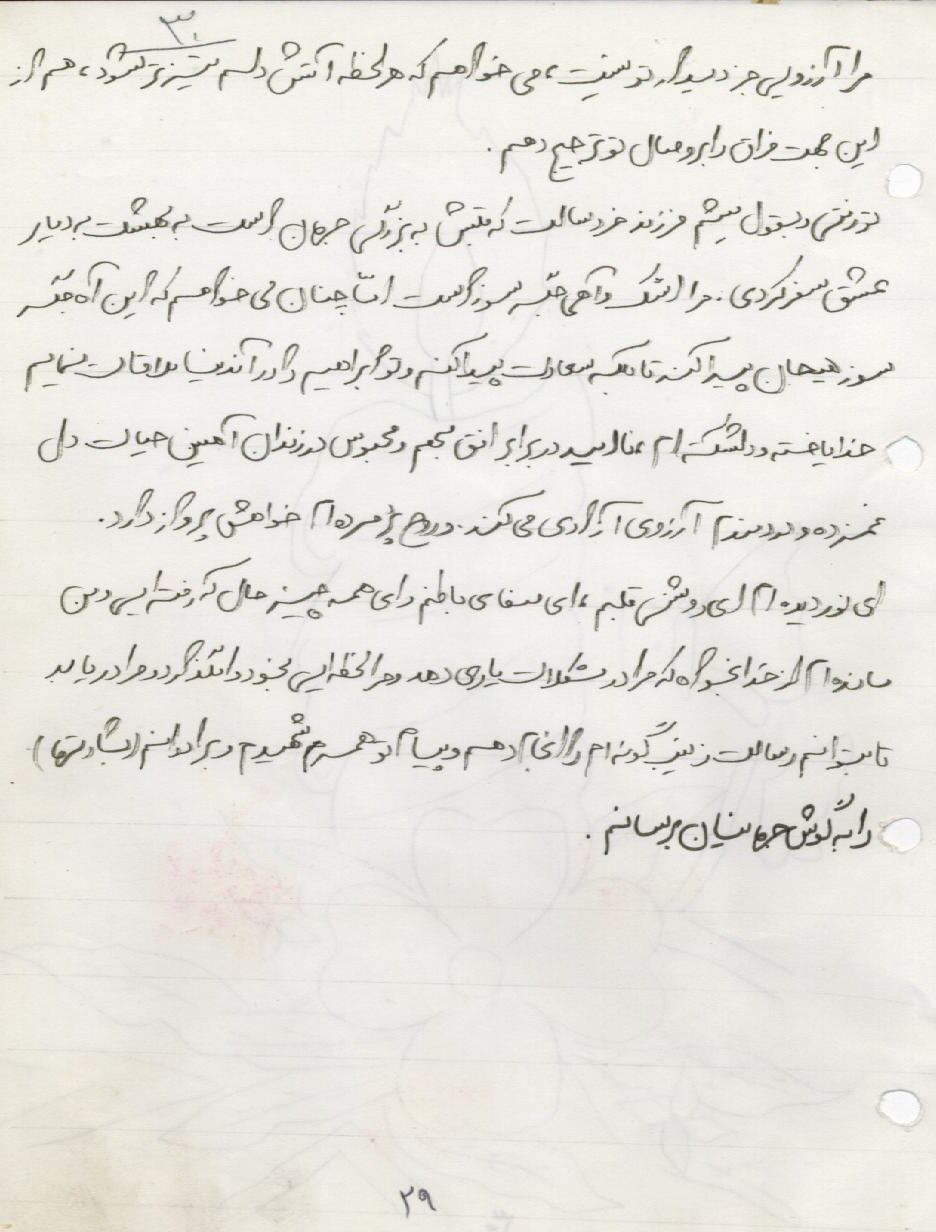 ۳۰
مرا آرزویی جز دیدار تو نیست، می خواهم که هر لحظه آتش دلم تیزتر شود، هم از
این جهت فراق را بر وصال تو ترجیح دهم.
تو رفتی و بقول میثم فرزند خردسالت که قلبش به بزرگی جهان است به بهشت به دیار
عشق سفر کردی. مرا اشک و آهی جگر سوز است امّا چنان می خواهم که این آه جگر
سوز هیجان پیدا کند تا بلکه سعادت پیدا کنم و تو ابراهیم را در آن دنیا ملاقات نمایم
خدایا خسته و دلشکسته ام، در برابر افق مبهم و محبوس در زندان آهنین حیات دل
غمزده و دردمندم آرزوی آزادی می کند. و روح پژمرده ام خواهش پرواز دارد.
ای نور دیده ام ای روشنی قلبم، ای صفای باطنم وای همه چیزم حال که رفته ایی و من
مانده ام از خدا بخواه که مرا در مشکلات یاری دهد و هر لحظه ایی بخود وانگذارد و مرا دریابد
تا بتوانم رسالت زینب گونه ام را انجام دهم و پیام تو همسرم شهیدم و برادرانم (بشارتها)
را به گوش جهانیان برسانم.
۲۹